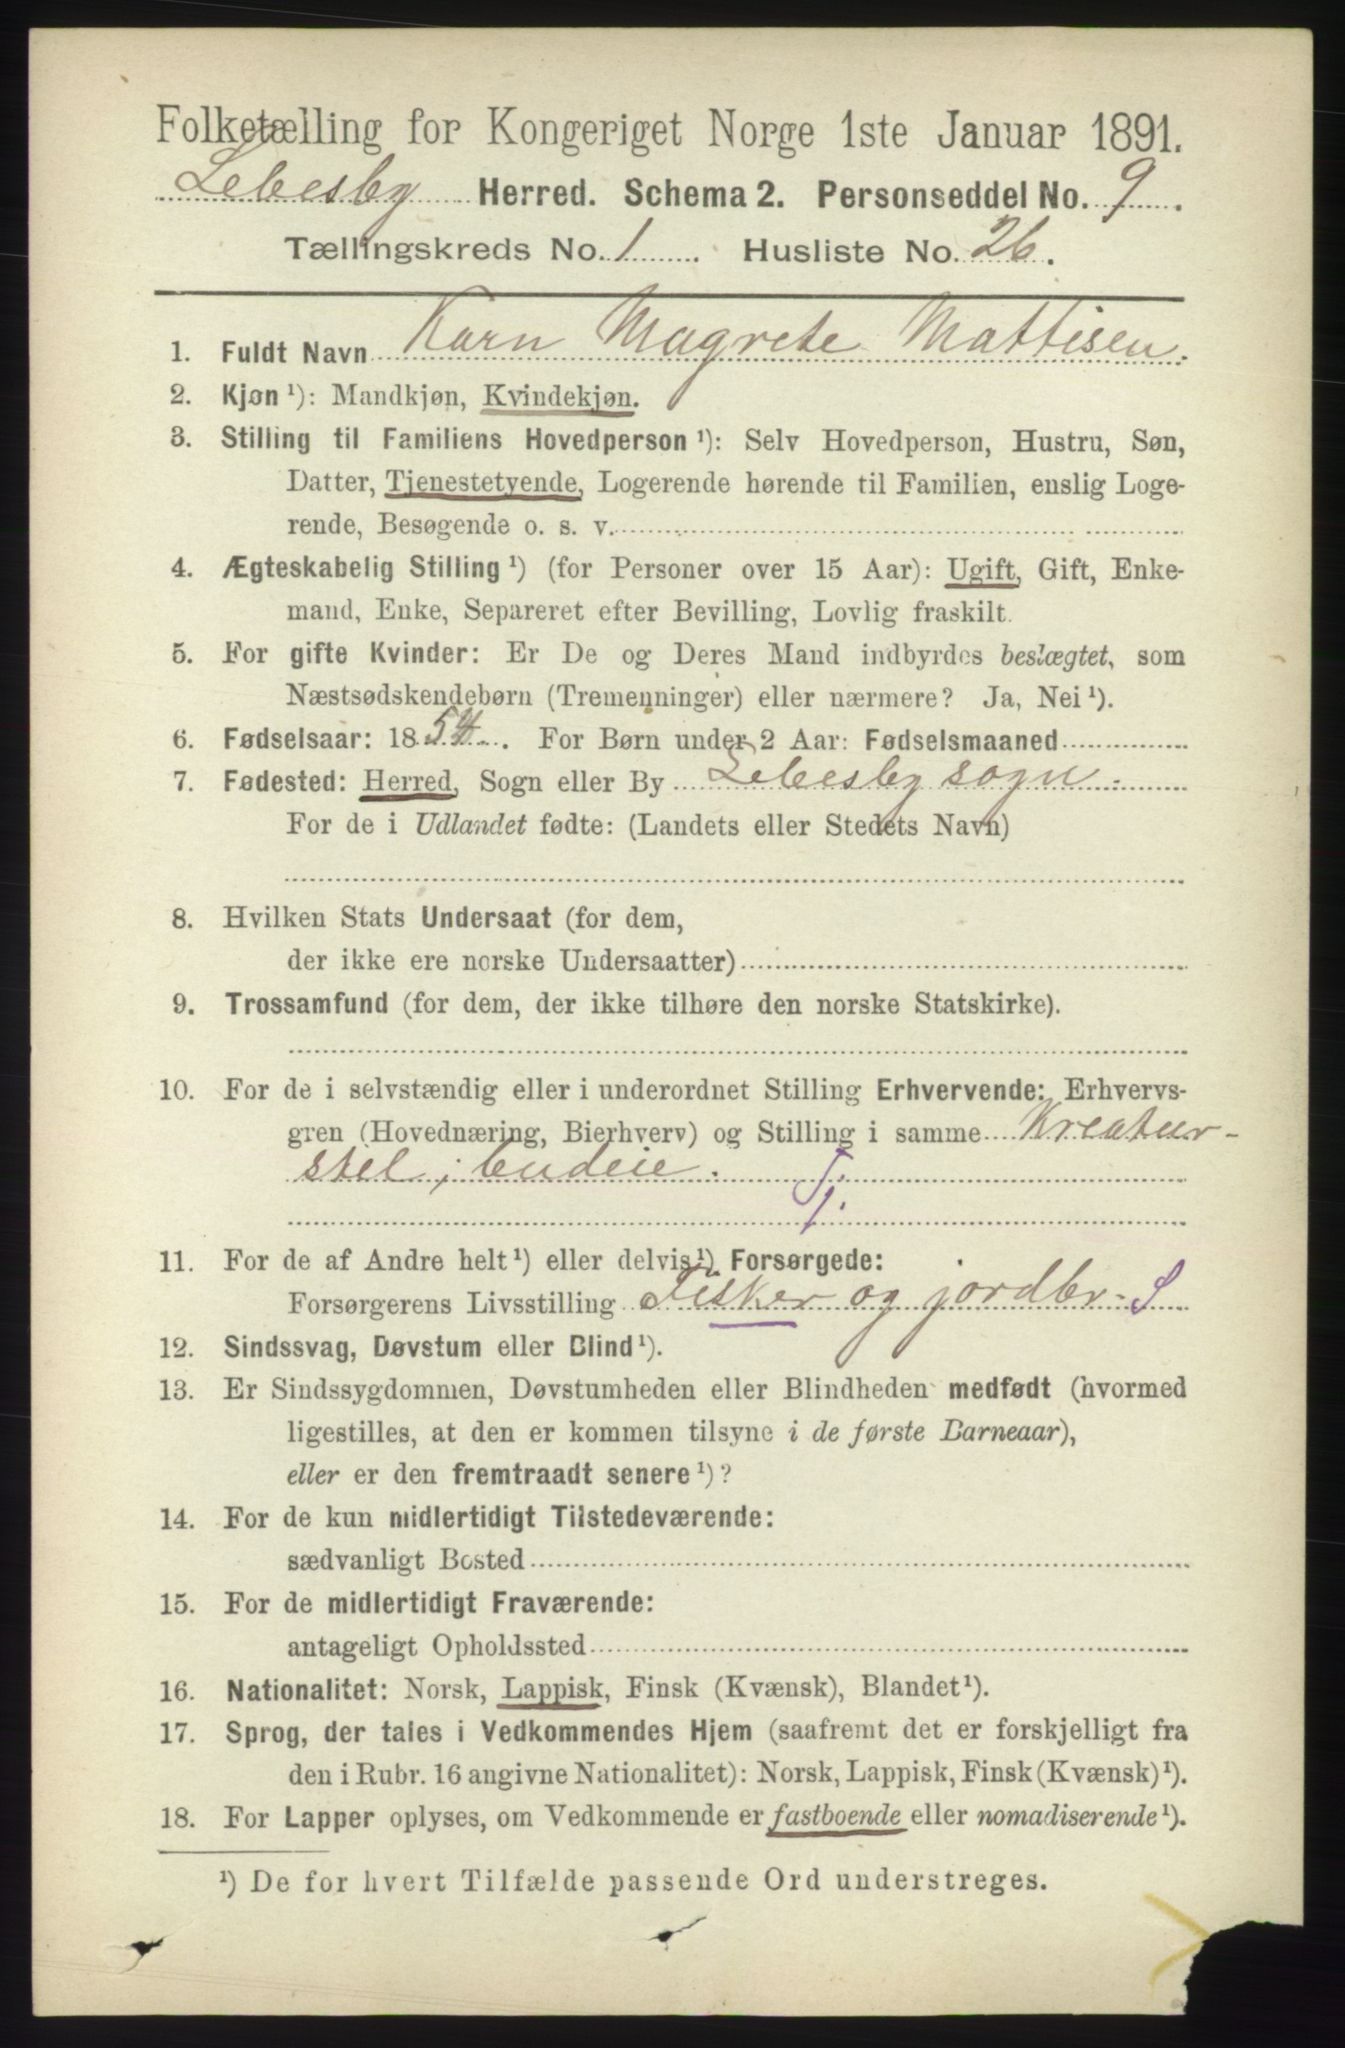 Folketælling for Kongeriget Norge 1ste Januar 1891.
Lebesby Herred. Schema 2. Personseddel No. 9.
Tællingskreds No. 1. Husliste No. 26.
1. Fuldt Navn Karn Magrete Mattisen.
2. Kjøn ¹): Mandkjøn, Kvindekjøn.
3. Stilling til Familiens Hovedperson ¹): Selv Hovedperson, Hustru, Søn,
Datter, Tjenestetyende, Logerende hørende til Familien, enslig Loge-
rende, Besøgende o. s. v.
4. Ægteskabelig Stilling ¹) (for Personer over 15 Aar): Ugift, Gift, Enke-
mand, Enke, Separeret efter Bevilling, Lovlig fraskilt.
5. For gifte Kvinder: Er De og Deres Mand indbyrdes beslægtet, som
Næstsødskendebørn (Tremenninger) eller nærmere? Ja, Nei ¹).
6. Fødselsaar: 1854. For Børn under 2 Aar: Fødselsmaaned
7. Fødested: Herred, Sogn eller By Lebesby sogn.
For de i Udlandet fødte: (Landets eller Stedets Navn)
8. Hvilken Stats Undersaat (for dem,
der ikke ere norske Undersaatter)
9. Trossamfund (for dem, der ikke tilhøre den norske Statskirke).
10. For de i selvstændig eller i underordnet Stilling Erhvervende: Erhvervs-
gren (Hovednæring, Bierhverv) og Stilling i samme Kreatur-
stel; budeie. Tj.
11. For de af Andre helt ¹) eller delvis ¹) Forsørgede:
Forsørgerens Livsstilling Fisker og jordbr- S
12. Sindssvag, Døvstum eller Blind ¹).
13. Er Sindssygdommen, Døvstumheden eller Blindheden medfødt (hvormed
ligestilles, at den er kommen tilsyne i de første Barneaar),
eller er den fremtraadt senere ¹)?
14. For de kun midlertidigt Tilstedeværende:
sædvanligt Bosted
15. For de midlertidigt Fraværende:
antageligt Opholdssted
16. Nationalitet: Norsk, Lappisk, Finsk (Kvænsk), Blandet ¹).
17. Sprog, der tales i Vedkommendes Hjem (saafremt det er forskjelligt fra
den i Rubr. 16 angivne Nationalitet): Norsk, Lappisk, Finsk (Kvænsk) ¹).
18. For Lapper oplyses, om Vedkommende er fastboende eller nomadiserende ¹).
¹) De for hvert Tilfælde passende Ord understreges.